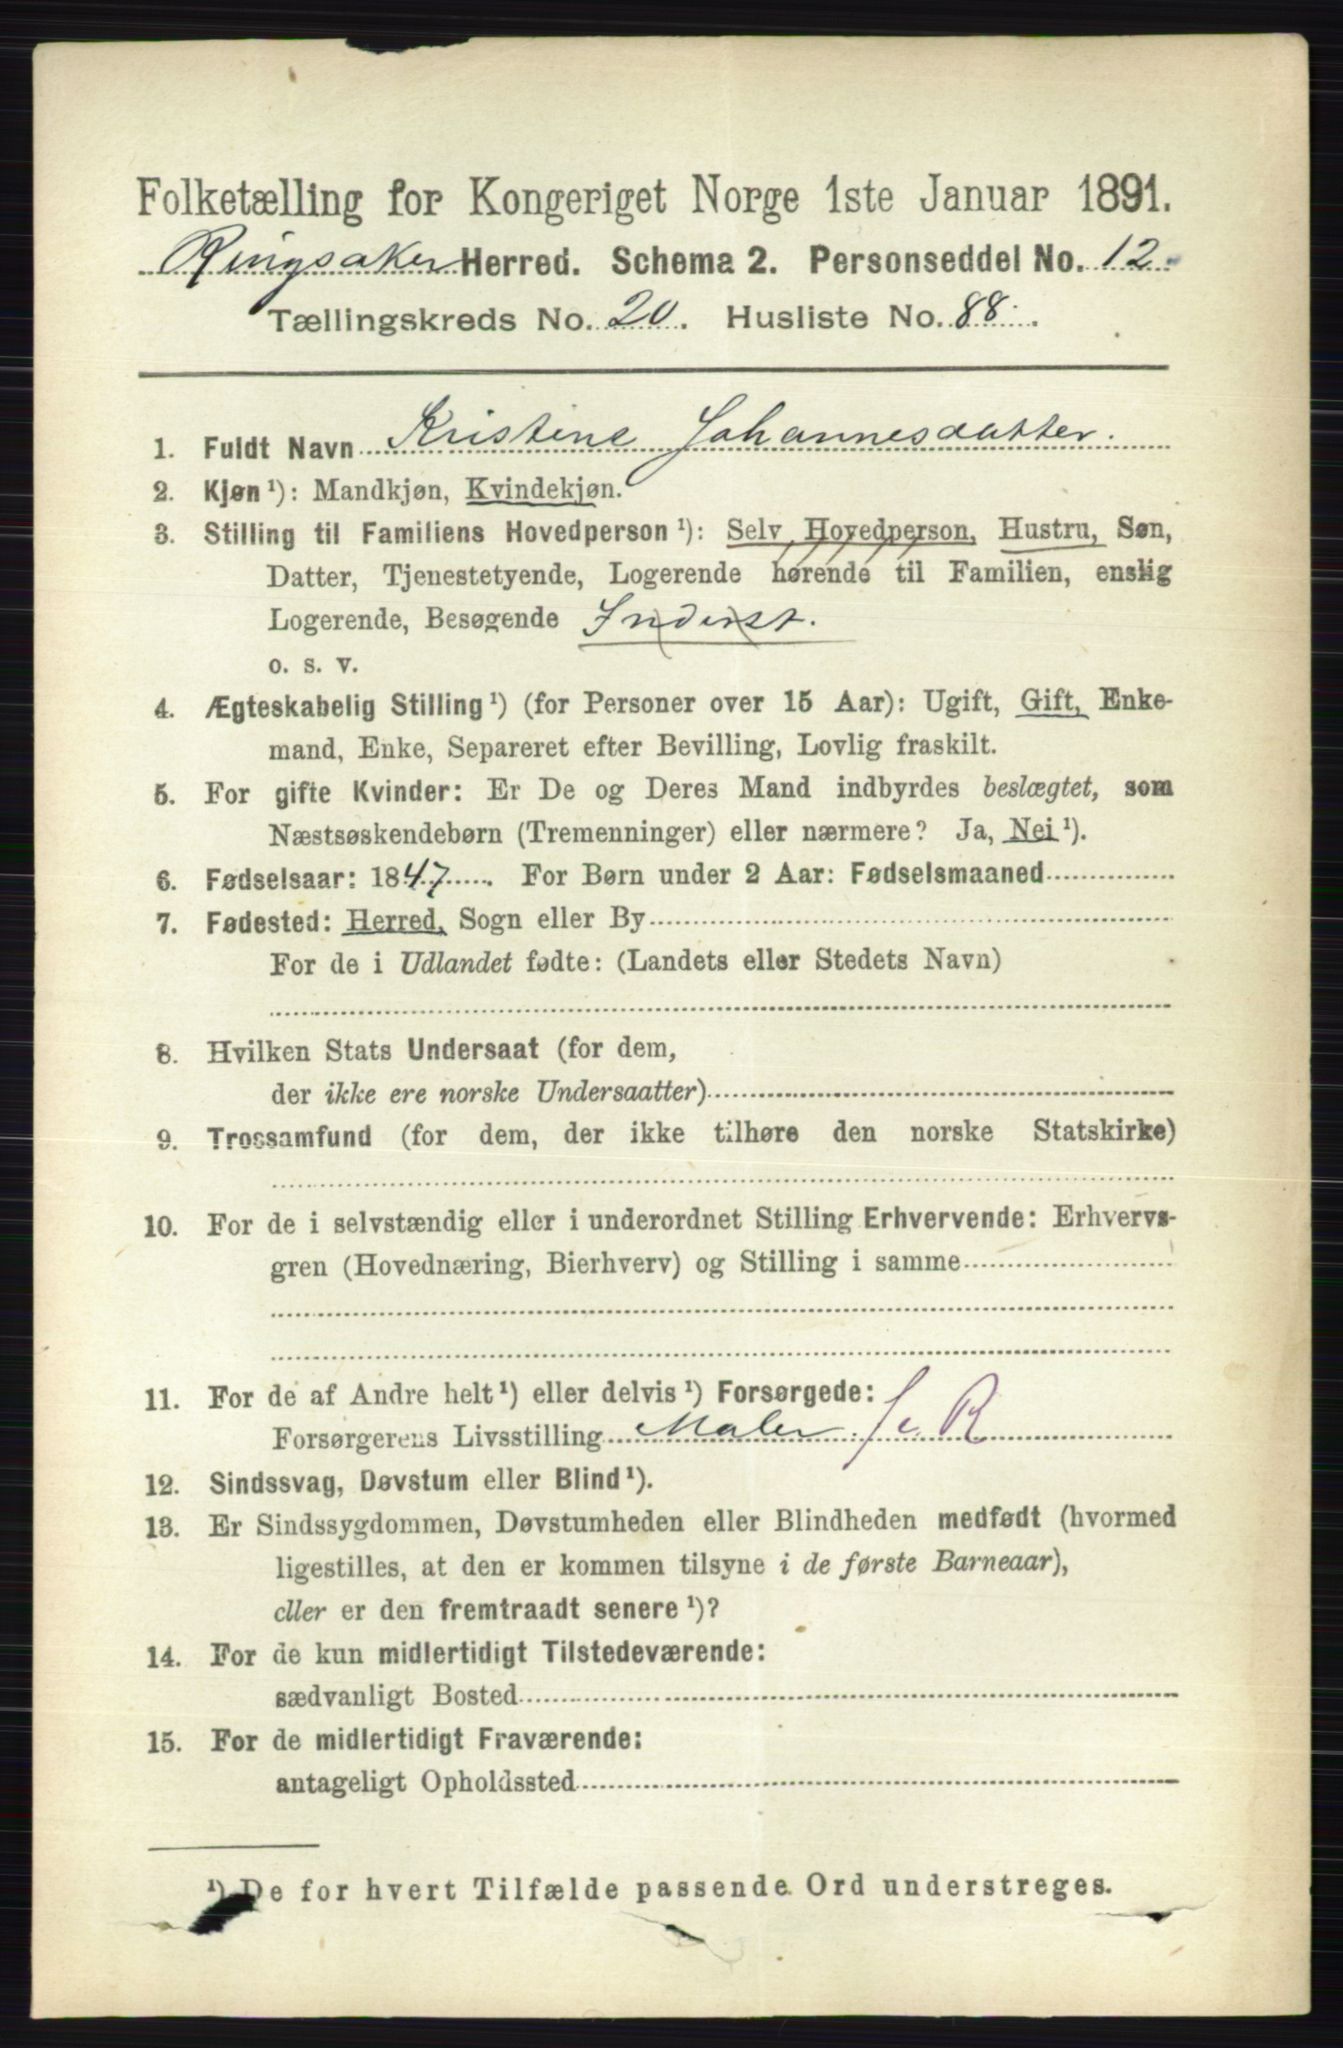 Folketælling for Kongeriget Norge 1ste Januar 1891.
Ringsaker Herred. Schema 2. Personseddel No. 12
Tællingskreds No. 20. Husliste No. 88.
1. Fuldt Navn Kristine Johannesdatter.
2. Kjøn ¹): Mandkjøn, Kvindekjøn.
3. Stilling til Familiens Hovedperson ¹): Selv Hovedperson, Hustru, Søn,
Datter, Tjenestetyende, Logerende hørende til Familien, enslig
Logerende, Besøgende Inderst.
o. s. v.
4. Ægteskabelig Stilling ¹) (for Personer over 15 Aar): Ugift, Gift, Enke-
mand, Enke, Separeret efter Bevilling, Lovlig fraskilt.
5. For gifte Kvinder: Er De og Deres Mand indbyrdes beslægtet, som
Næstsøskendebørn (Tremenninger) eller nærmere? Ja, Nei ¹).
6. Fødselsaar: 1847. For Børn under 2 Aar: Fødselsmaaned
7. Fødested: Herred, Sogn eller By
For de i Udlandet fødte: (Landets eller Stedets Navn)
8. Hvilken Stats Undersaat (for dem,
der ikke ere norske Undersaatter)
9. Trossamfund (for dem, der ikke tilhøre den norske Statskirke)
10. For de i selvstændig eller i underordnet Stilling Erhvervende: Erhvervs-
gren (Hovednæring, Bierhverv) og Stilling i samme
11. For de af Andre helt ¹) eller delvis ¹) Forsørgede:
Forsørgerens Livsstilling Maler.
12. Sindssvag, Døvstum eller Blind ¹).
13. Er Sindssygdommen, Døvstumheden eller Blindheden medfødt (hvormed
ligestilles, at den er kommen tilsyne i de første Barneaar),
eller er den fremtraadt senere ¹)?
14. For de kun midlertidigt Tilstedeværende:
sædvanligt Bosted
15. For de midlertidigt Fraværende:
antageligt Opholdssted
¹) De for hvert Tilfælde passende Ord understreges.